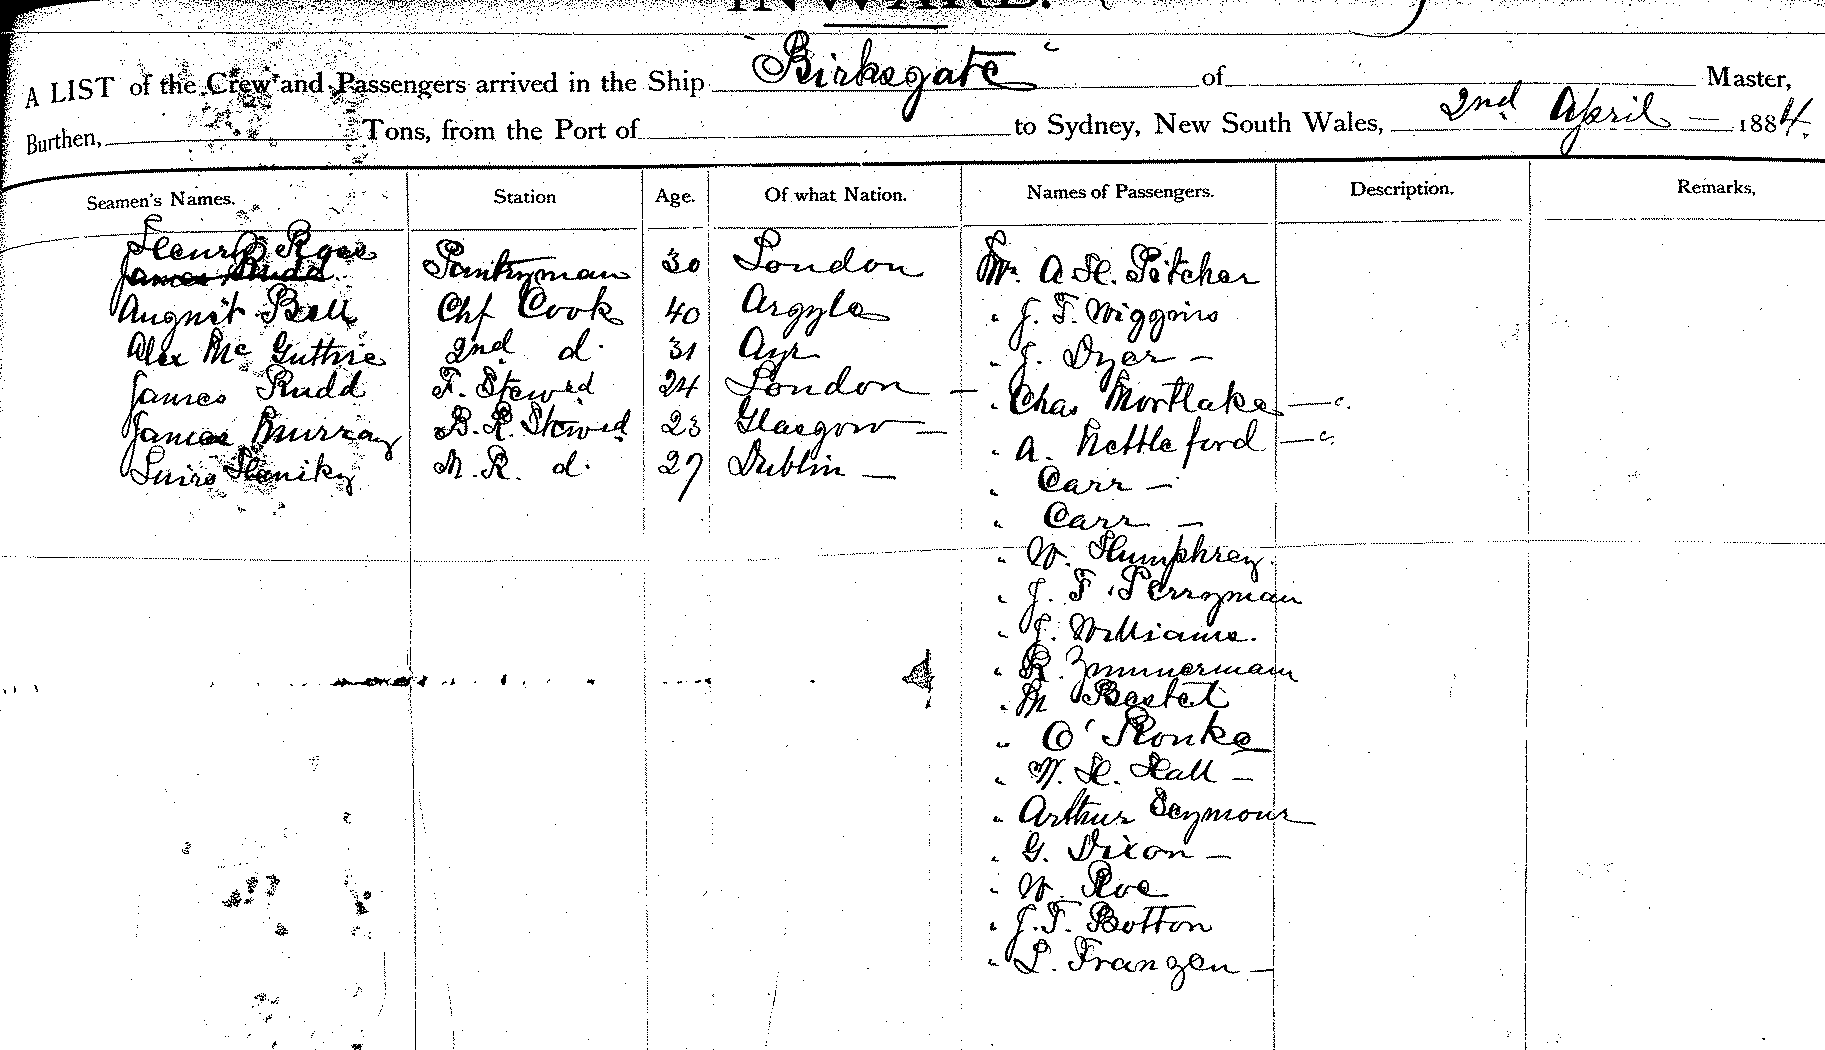 INWARD.
A LIST of the Crew and Passengers arrived in the Ship "Birksgate" of Master,
Burthen, Tons, from the Port of to Sydney, New South Wales, 2nd April — 1884.
Seamen's Names. Station Age. Of what Nation. Names of Passengers. Description. Remarks.
Henry Rose
James Rudd Pantryman 30 London Mr. A H. Pitcher
August Bell Chf Cook 40 Argyle " J. F. Wiggins
Alex Mc Guthrie 2nd d. 31 Ayr " J. Dyer —
James Rudd F. Steward 24 London — " Chas Mortlake —"
James Murray B. R. Steward 23 Glasgow — " A. Nettleford —"
M. R. d. 27 Dublin — " Carr —
" Carr —
" W. Humphrey.
" J. F. Perryman
" J. Williams.
" R. Zimmerman
" M Bestet
" O' Ronke
" W. H. Hall —
" Arthur Seymour
" G. Dixon —
" W. Roe
" J. T. Botton
" L. Franzen —